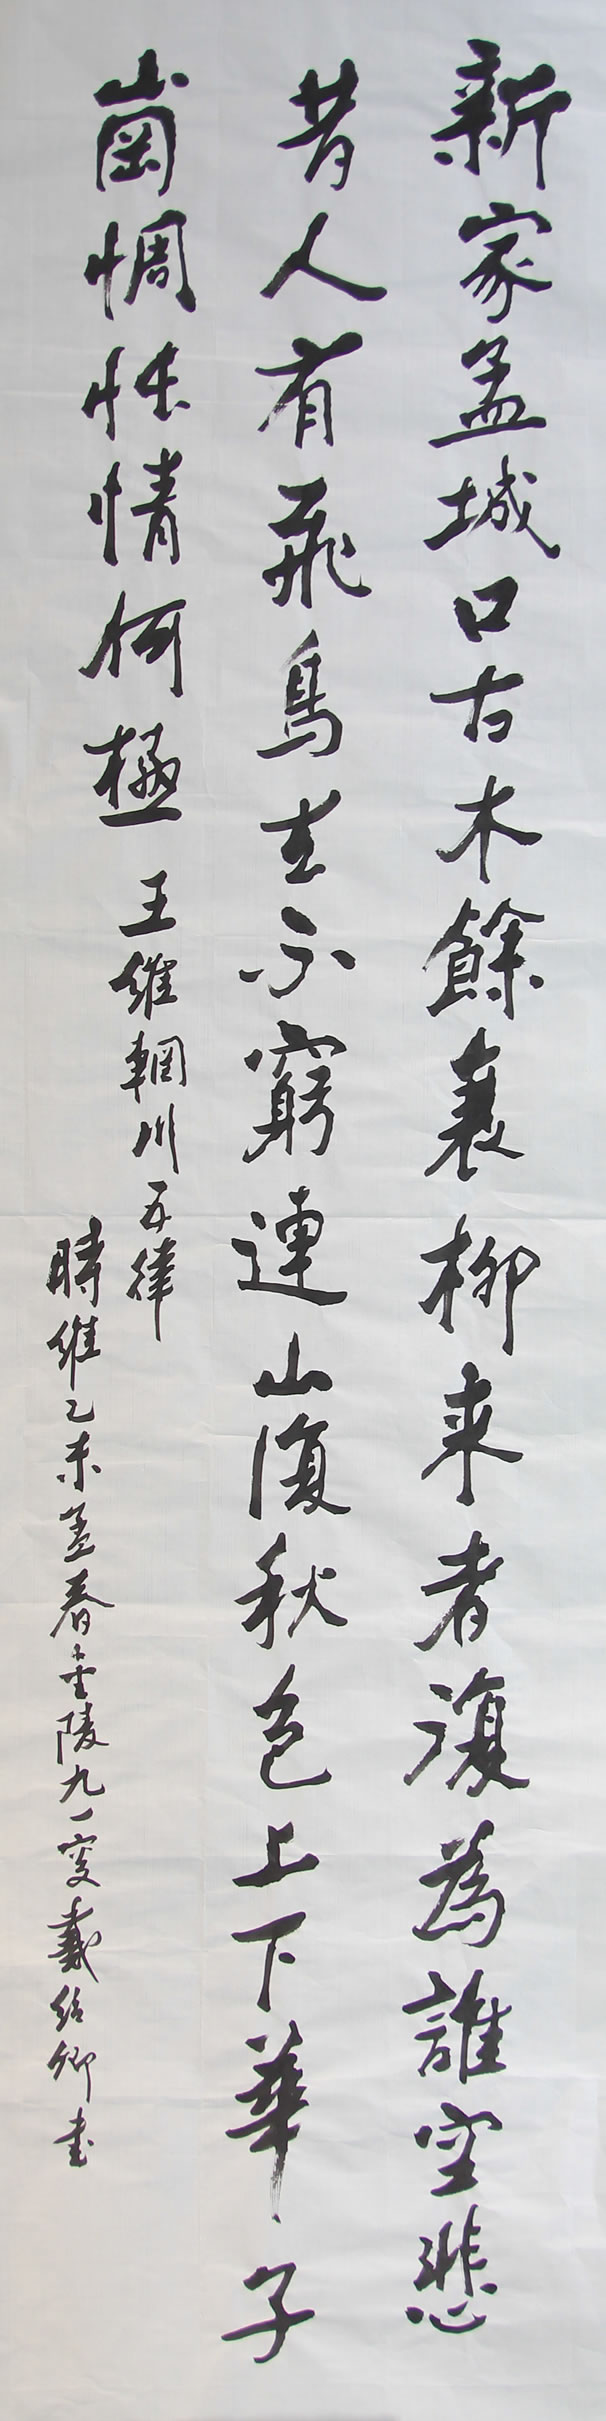 新家孟城口古木餘衰柳来者復為誰空悲
昔人有飛鳥去不窮連山復秋色上下華子
崗惆悵情何極
王維輞川五律
時維乙未孟春金陵九一叟戴紹卿书